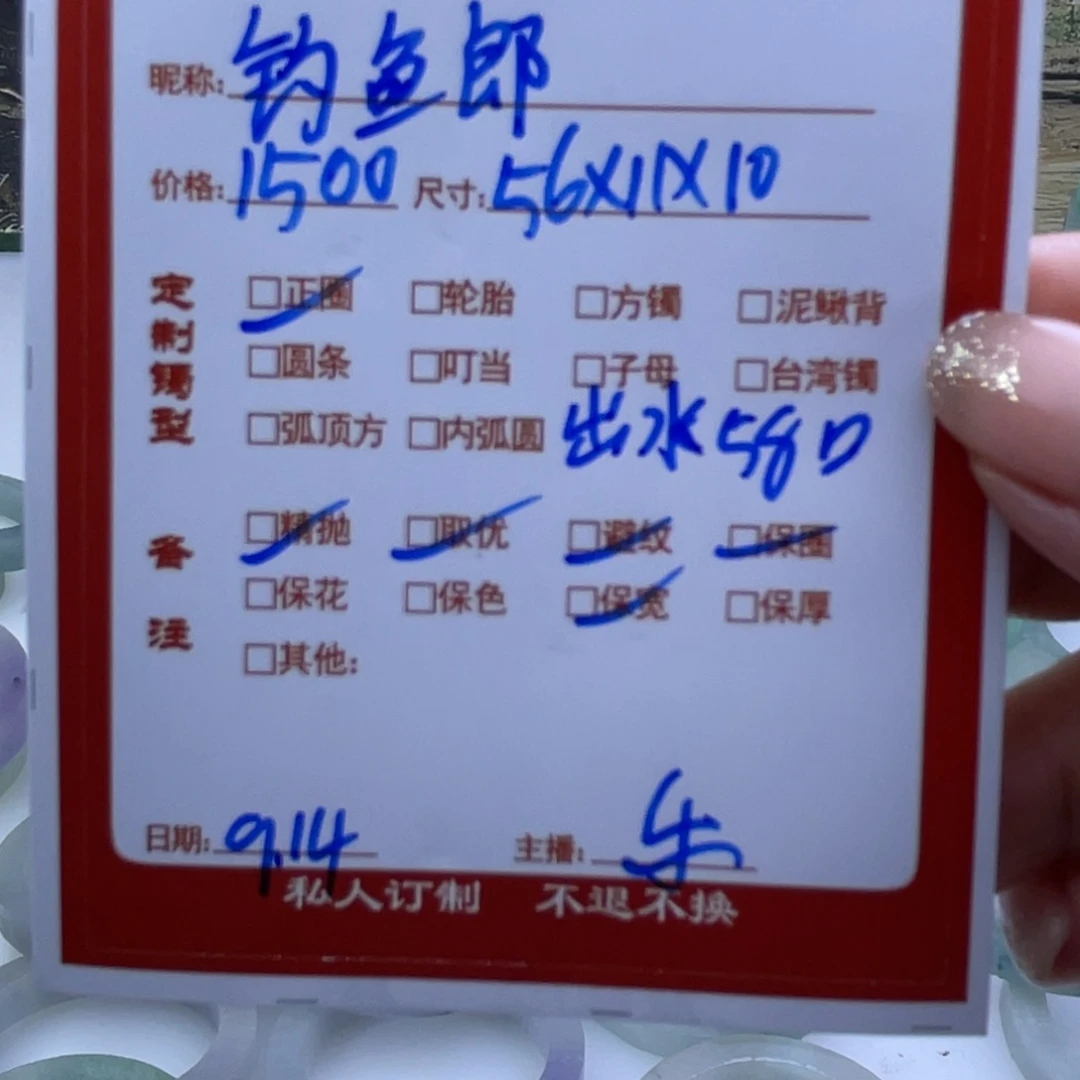 昵称: 钓鱼郎
价格: 1500 尺寸: 56X11X10
定制镯型
□正圈 □轮胎 □方镯 □泥鳅背
□圆条 □叮当 □子母 □台湾镯
□弧顶方 □内弧圆 出水580
备注
□精抛 □取优 □避纹 □保圈
□保花 □保色 □保宽 □保厚
□其他:
日期: 9.14 主播: 乐
私人订制 不退不换